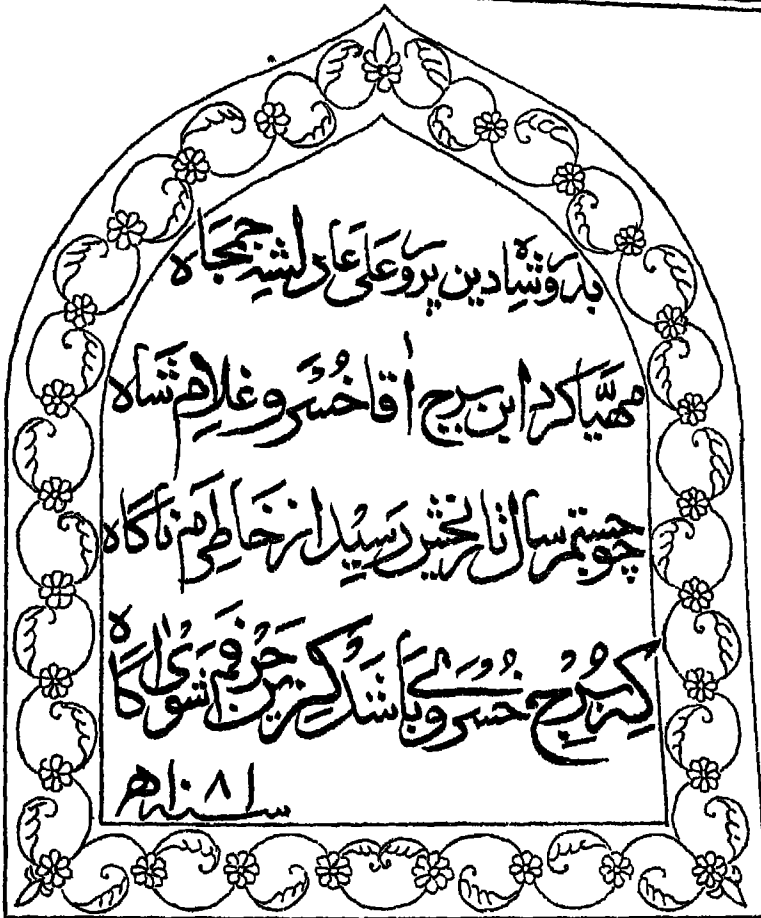 بدور شاه دین پرور علی عادل شه جمجاه
مهیّا کرد این برج آقا خسرو غلامِ شاه
چو جستم سال تاریخش رسید از خاطرم ناگاه
که برج خسروی باشد کزین حرفم شوی آگاه
سنه ۱۰۸۱ه